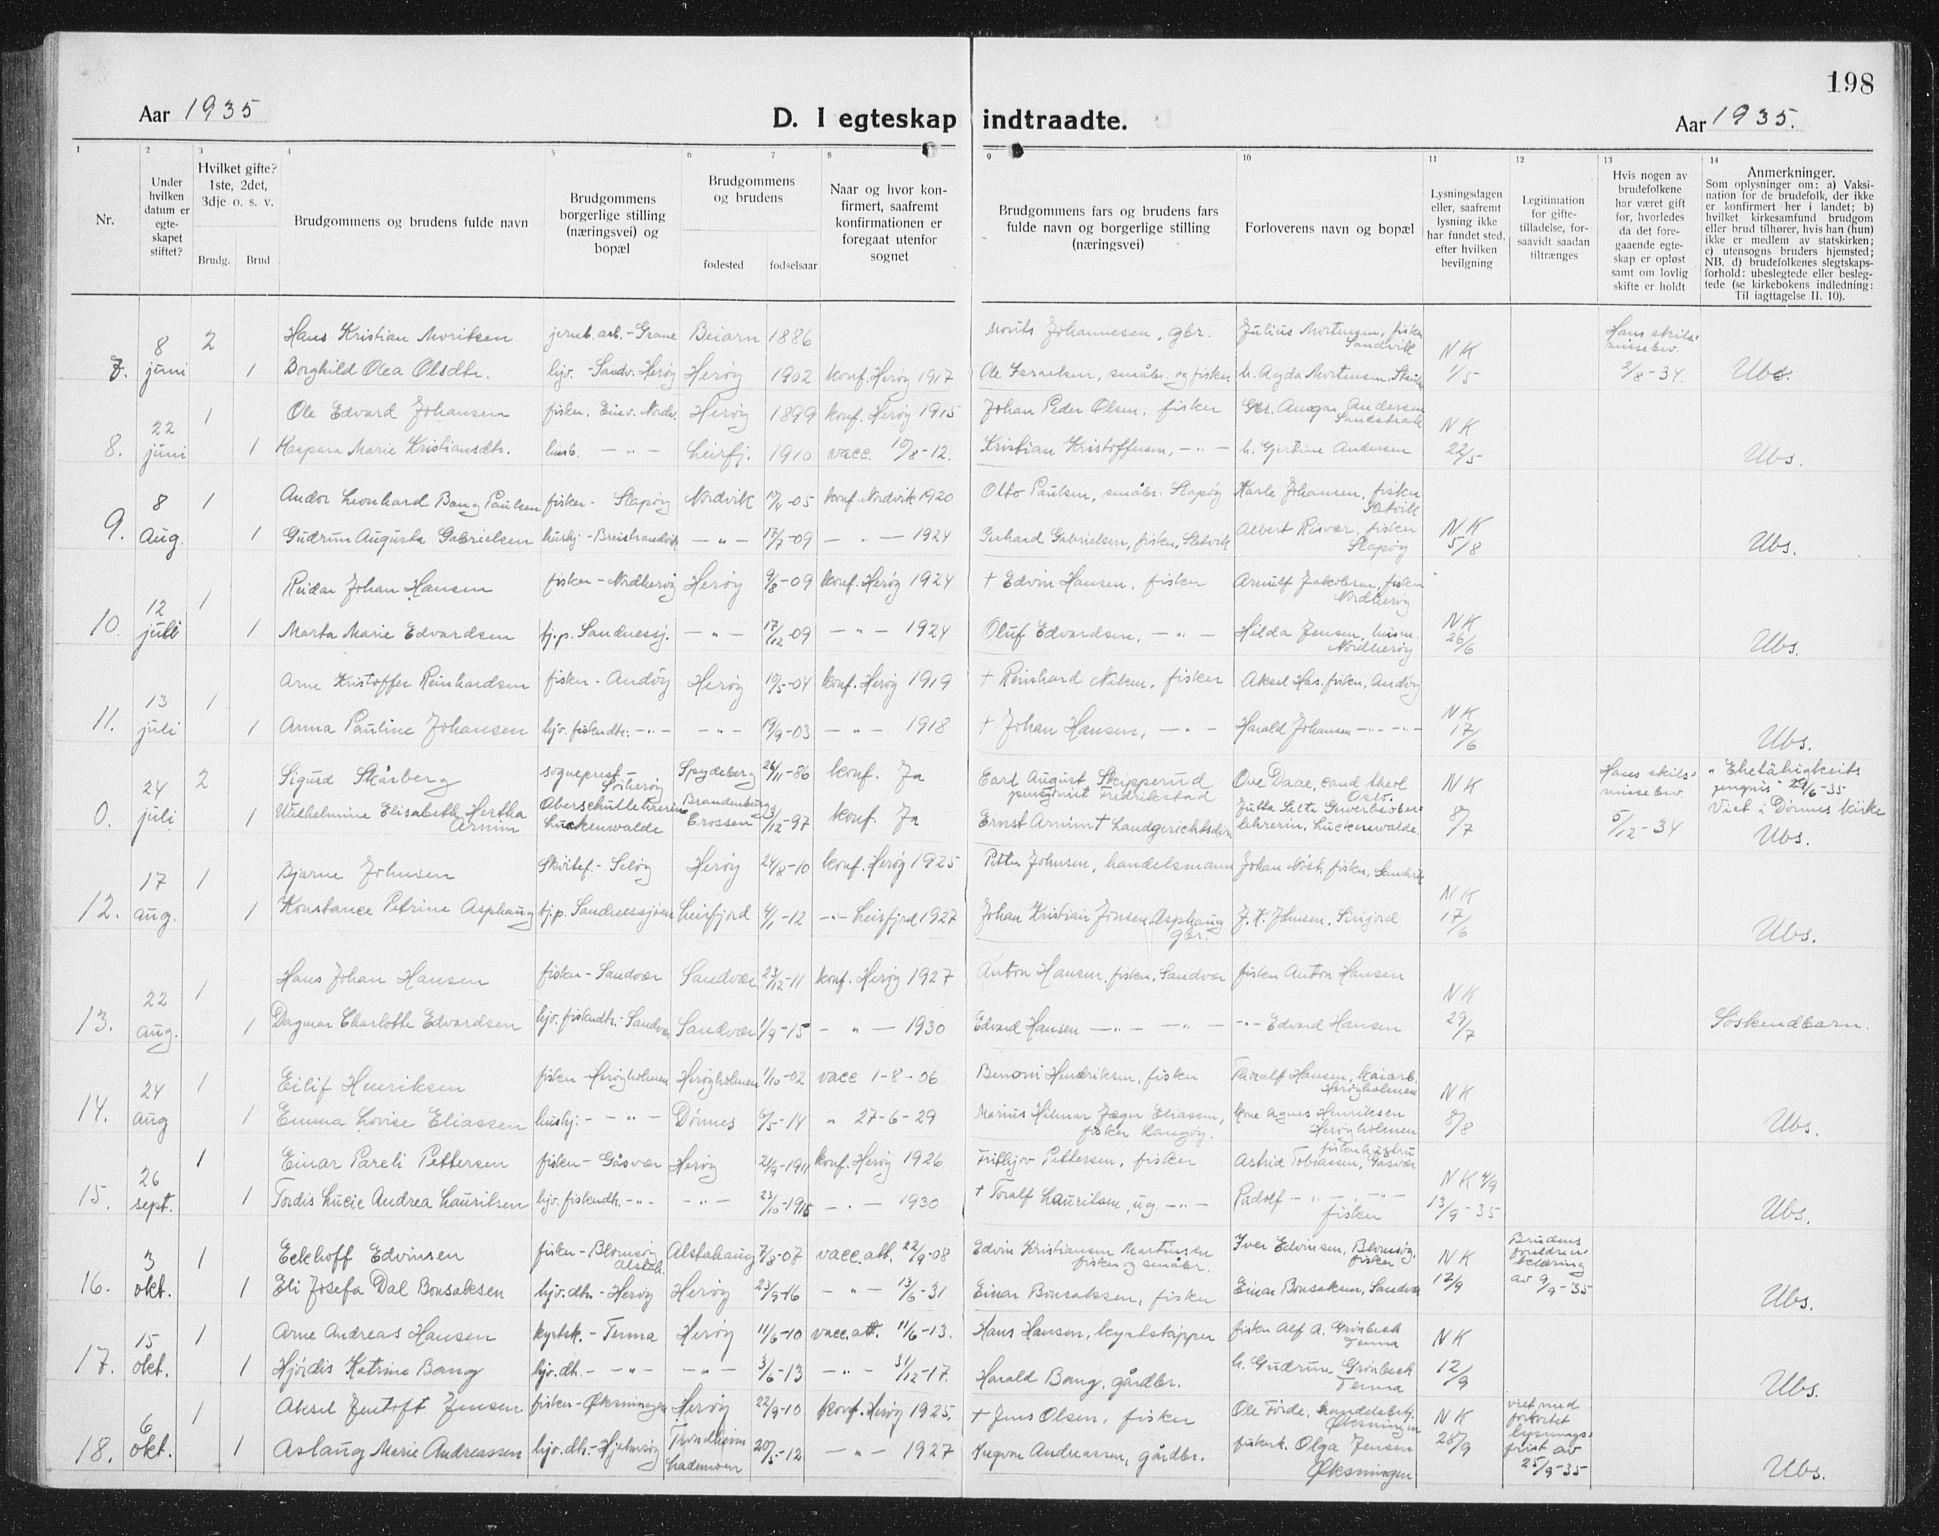 198
Aar 1935
D. I egteskap indtraadte.
Aar 1935.
1 2 3 4 5 6 7 8 9 10 11 12 13 14
Nr.
Under hvilken datum er egte-skapet stiftet?
Hvilket gifte? 1ste, 2det, 3dje o. s. v.
Brudg. Brud
Brudgommens og brudens fulde navn
Brudgommens borgerlige stilling (næringsvei) og bopæl
Brudgommens og brudens
fødested fødselsaar
Naar og hvor kon-firmert, saafremt konfirmationen er foregaat utenfor sognet
Brudgommens fars og brudens fars fulde navn og borgerlige stilling (næringsvei)
Forloverens navn og bopæl
Lysningsdagen eller, saafremt lysning ikke har fundet sted, efter hvilken bevilgning
Legitimation for gifte-tilladelse, for-saavidt saadan tiltrænges
Hvis nogen av brudefolkene har været gift før, hvorledes da det fore-gaaende egte-skap er opløst samt om lovlig skifte er holdt
Anmerkninger.
Som oplysninger om: a) Vaksi-nation for de brudefolk, der ikke er konfirmert her i landet; b) hvilket kirkesamfund brudgom eller brud tilhører, hvis han (hun) ikke er medlem av statskirken; c) utensogns bruders hjemsted; NB. d) brudefolkenes slegtskaps-forhold: ubeslegtede eller besleg-tede (se kirkebokens indledning: Til iagttagelse II. 10).
7. 8 juni 2 Hans Kristian Moriksen jernb. arb. - Grane Beiarn 1886 Morits Johannesen, gbr. Julius Mortensen, fisker Sandvik NK 1/5 Hans skils-misse bev. 2/8-34.
1 Borghild Olea Olsdtr. hjv. - Sandv. Herøy Herøy 1902 konf. Herøy 1917 Ole Israelsen, småbr. og fisker h. Agda Mortensen, Ubs.
8. 22 juni 1 Ole Edvard Johansen fisker, Nordv. Herøy 1899 konf. Herøy 1915 Johan Peder Olsen, fisker Gbr. Ansgar Andersen NK 22/5
1 Kaspara Marie Kristiansdtr. - " - Leirfj. 1910 vacc. 10/8-12. Kristian Kristoffersen, - " - h. Gjertine Andersen Ubs.
9. 8 Aug. 1 Andor Leonhard Bang Paulsen fisker - Slapøy Nordvik 05 konf. Nordvik 1920 Otto Paulsen, småbr. Slapøy Karle Johansen, fisker NK 5/8
1 Gudrun Augusta Gabrielsen hushj. - Breistrandvik - " - 17/7-09 - " - 1924 Gerhard Gabrielsen, fisker, Albert Risvær, fisker Slapøy Ubs.
10. 12 juli 1 Reidar Johan Hansen fisker - Nordherøy Herøy 9/8-09 konf. Herøy 1924 + Edvin Hansen, fisker Arnulf Jakobsen, fisker Nordherøy NK 26/6
1 Marta Marie Edvardsen tj.p. Sandnessj. - " - 17/12-09 - " - 1924 Oluf Edvardsen, - " - Hilda Jensen, Nordherøy Ubs.
11. 13 juli 1 Arne Kristoffer Reinhardsen fisker - Andøy Herøy 19/5-04 konf. Herøy 1919 + Reinhard Nilsen, fisker Aksel Has. fisker, Andøy NK 17/6
1 Anna Pauline Johansen hjv. fiskerdtr. - " - - " - 19/9-03 - " - 1918 + Johan Hansen, - " - Harald Johansen - " - Ubs.
0. 24 juli 2 Sigurd Skårberg sogneprest - Sørherøy Spydeberg 26/11-86 konf. Ja Carl August Skipperud pensjonist Fredrikstad Ove Daae, cand theol Oslo. NK 8/7 Hans skils-misse bev. 5/12-34 "Ehefähigkeits zeugnis" 29/6-35
1 Wilhelmine Elisabeth Hertha Arnim Oberschullehrerin Luckenwalde Brandenburg Crossen 3/12-97 konf. Ja Ernst Arnim + Landgerichtsdir. Jutta Gewerbeober lehrerin, Luckenwalde. Viet i Dønnes kirke Ubs.
12. 17 aug. 1 Bjarne Johnsen Skoltef. - Seløy Herøy 24/8-10 konf. Herøy 1925 Petter Johnsen, handelsmann Johan fisker, Sandvik NK 17/6
1 Konstance Petrine Asphaug tj.p. Sandnessjøen Leirfjord 4/1-12 - " - Leirfjord 1927 Johan Kristian Jonsen Asphaug gbr. J. K. Johnsen, Ubs.
13. 22 aug. 1 Hans Johan Hansen fisker - Sandvær Sandvær 23/12-11 konf. Herøy 1927 Anton Hansen, fisker, Sandvær fisker Anton Hansen NK 29/7
1 Dagmar Charlotte Edvardsen hjv. fiskerdtr. - Sandvær Sandvær 1/9-15 - " - 1930 Edvard Hansen - " - - " - - " - Edvard Hansen Søskendbarn.
14. 24 aug 1 Eilif Henriksen fisker - Herøyholmen Herøyholmen 1/10-02 vacc 1-8-06 Benoni Hendriksen, fisker Thoralf Hansen, kaiarb. Herøyholmen NK 8/8
1 Emma Lovise Eliassen hushj. - " - Dønnes 6/5-14 " 27-6-29 Marius Hilmar Jæger Eliassen, fisker Langøy. kone Agnes Henriksen Herøyholmen Ubs.
15. 26 sept. 1 Einar Pareli Pettersen fisker - Gåsvær Herøy 21/9-1911 konf. Herøy 1926 Frithjov Pettersen, fisker Astrid Tobiassen, Gåsvær NK 4/9 13/9-35
1 Tordis Lucie Andrea Lauritsen hjv. fiskerdtr. - " - - " - 23/10-1915 - " - 1930 + Toralf Lauritsen, ug. - " - Radolf - " - fisker Ubs.
16. 3 okt. 1 Eckhoff Edvinsen fisker - Blomsøy Alstah. Alstahaug 7/8-07 vacc. att. 22/9-08 Edvin Kristiansen Martinsen fisker og småbr. Iver Edvinsen, Blomsøy, fisker NK 12/9 Brudens foreldres erklæring av 9/9-35
1 Eli Josefa Dal Bonsaksen hjv. dtr. - Herøy Herøy 23/9-16 - " - 13/6-31 Einar Bonsaksen, fisker Einar Bonsaksen, Sandvær Ubs.
17. 15 okt. 1 Arne Andreas Hansen kystsk. - Tenna Herøy 11/6-10 vacc. att. 11/6-13. Hans Hansen, kystskipper fisker Alf A. Grønbech Tenna NK 12/9
1 Hjørdis Katrine Bang hjv. dh. - " - - " - 3/6-13 - " - 31/12-17. Harald Bang, gårdbr. h. Gudrun Grønbech Tenna Ubs.
18. 6 okt. 1 Aksel Zentoft Jensen fisker - Øksningen Herøy 22/9-10 konf. Herøy 1925. + Jens Olsen, fisker Ole Førde, handelsbetj. Øksningen NK 28/9 viet med forkortet lysnings-frist av 25/9-35
1 Aslaug Marie Andreassen hjv. dh. - Hjelmsøy Trondheim Lademoen 20/5-12 - " - 1927 Yngvar Andreassen, gårdbr. fiskerk. Olga Jensen Øksningen Ubs.